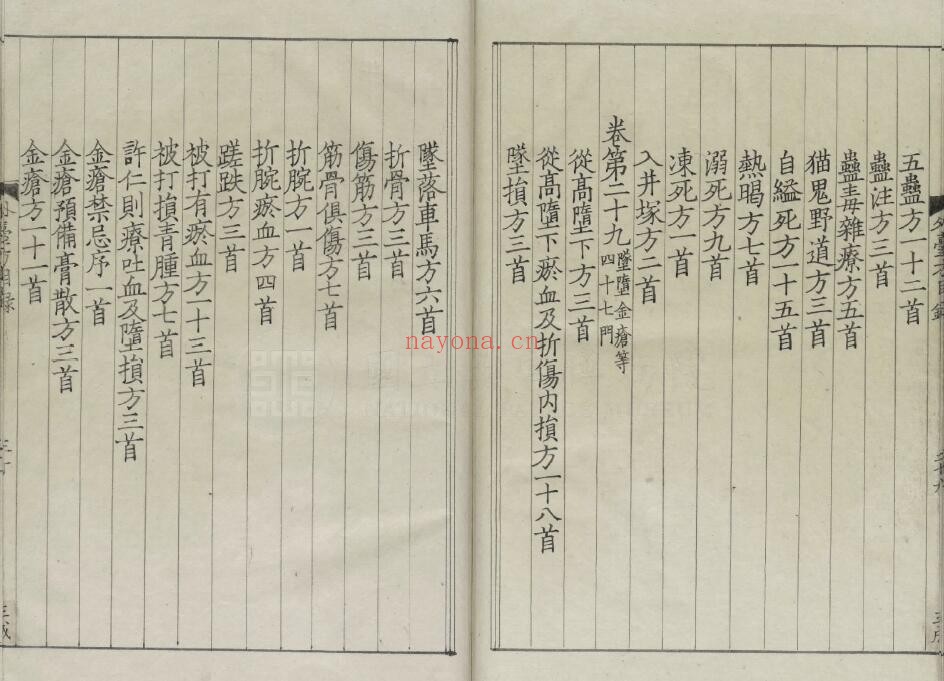 五蠱方一十二首
蠱注方三首
蠱毒雜療方五首
猫鬼野道方三首
自縊死方一十五首
熱暍方七首
溺死方九首
凍死方一首
入井塚方二首
卷第二十九墜墮金瘡等四十七門
從高墮下方三首
從高墮下瘀血及折傷內損方一十八首
墜損方三首
墜落車馬方六首
折骨方三首
傷筋方三首
筋骨俱傷方七首
折腕方一首
折腕瘀血方四首
蹉跌方三首
被打有瘀血方一十三首
被打損青腫方七首
許仁則療吐血及墮損方三首
金瘡禁忌序一首
金瘡預備膏散方三首
金瘡方一十一首
nayona.cn